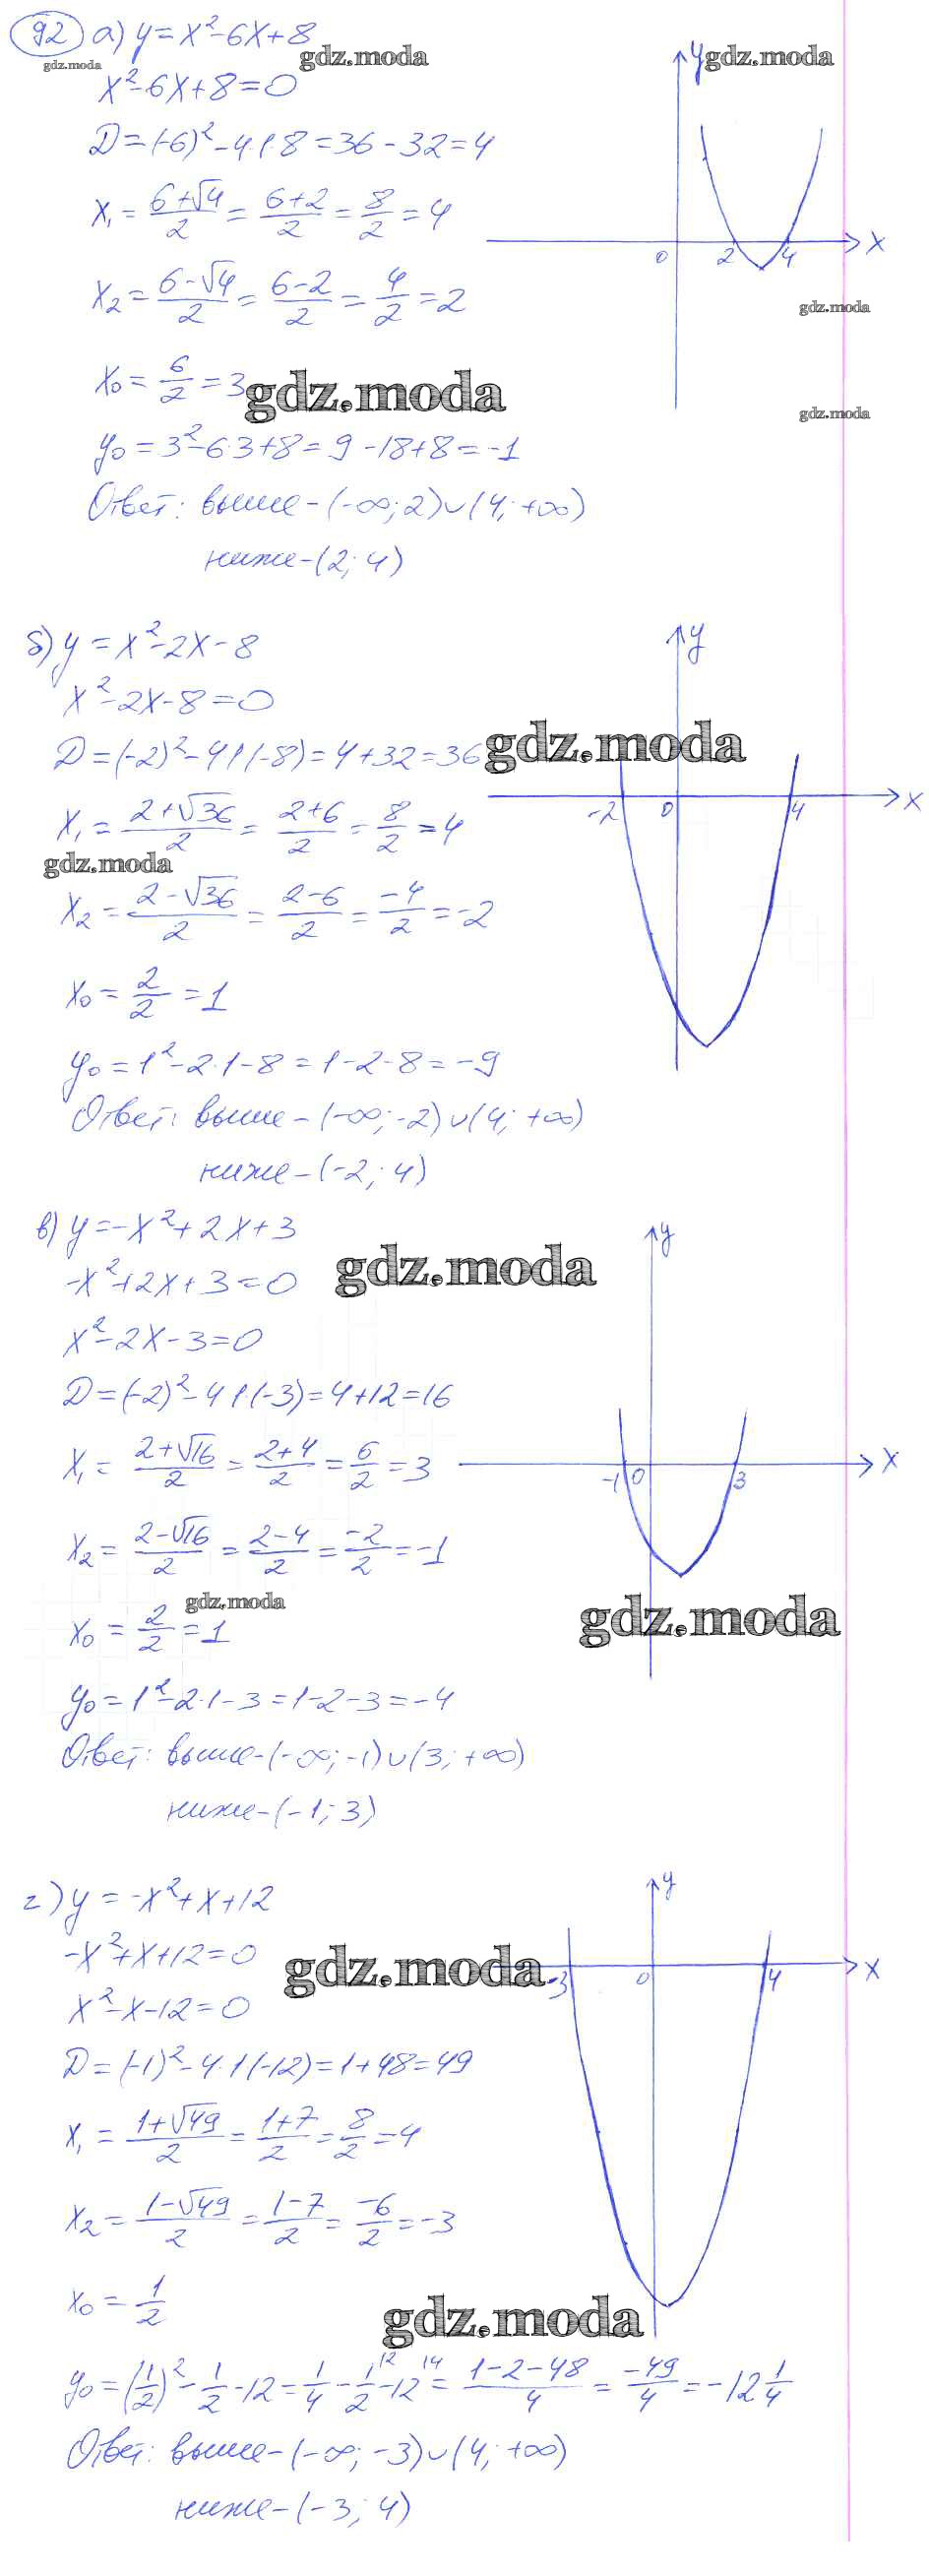 92 а) y = x² - 6x + 8
gdz.moda
gdz.moda
y gdz.moda
x² - 6x + 8 = 0
D = (-6)² - 4·1·8 = 36 - 32 = 4
x₁ = (6+√4)/2 = (6+2)/2 = 8/2 = 4
0 2 4 x
x₂ = (6-√4)/2 = (6-2)/2 = 4/2 = 2
gdz.moda
x₀ = 6/2 = 3
gdz.moda
gdz.moda
y₀ = 3² - 6·3 + 8 = 9 - 18 + 8 = -1
Ответ: выше - (-∞; 2) ∪ (4; +∞)
ниже - (2; 4)
б) y = x² - 2x - 8
y
x² - 2x - 8 = 0
D = (-2)² - 4·1·(-8) = 4 + 32 = 36
gdz.moda
-2 0 4 x
x₁ = (2+√36)/2 = (2+6)/2 = 8/2 = 4
gdz.moda
x₂ = (2-√36)/2 = (2-6)/2 = -4/2 = -2
x₀ = 2/2 = 1
y₀ = 1² - 2·1 - 8 = 1 - 2 - 8 = -9
Ответ: выше - (-∞; -2) ∪ (4; +∞)
ниже - (-2; 4)
в) y = -x² + 2x + 3
y
gdz.moda
-x² + 2x + 3 = 0
x² - 2x - 3 = 0
D = (-2)² - 4·1·(-3) = 4 + 12 = 16
x₁ = (2+√16)/2 = (2+4)/2 = 6/2 = 3
-1 0 3 x
x₂ = (2-√16)/2 = (2-4)/2 = -2/2 = -1
gdz.moda
gdz.moda
x₀ = 2/2 = 1
y₀ = 1² - 2·1 - 3 = 1 - 2 - 3 = -4
Ответ: выше - (-∞; -1) ∪ (3; +∞)
ниже - (-1; 3)
г) y = -x² + x + 12
y
-x² + x + 12 = 0
gdz.moda
-3 0 4 x
x² - x - 12 = 0
D = (-1)² - 4·1(-12) = 1 + 48 = 49
x₁ = (1+√49)/2 = (1+7)/2 = 8/2 = 4
x₂ = (1-√49)/2 = (1-7)/2 = -6/2 = -3
x₀ = 1/2
gdz.moda
y₀ = (1/2)² - 1/2 - 12 = 1/4 - 1/2 \2 - 12 \4 = (1-2-48)/4 = -49/4 = -12 1/4
Ответ: выше - (-∞; -3) ∪ (4; +∞)
ниже - (-3; 4)